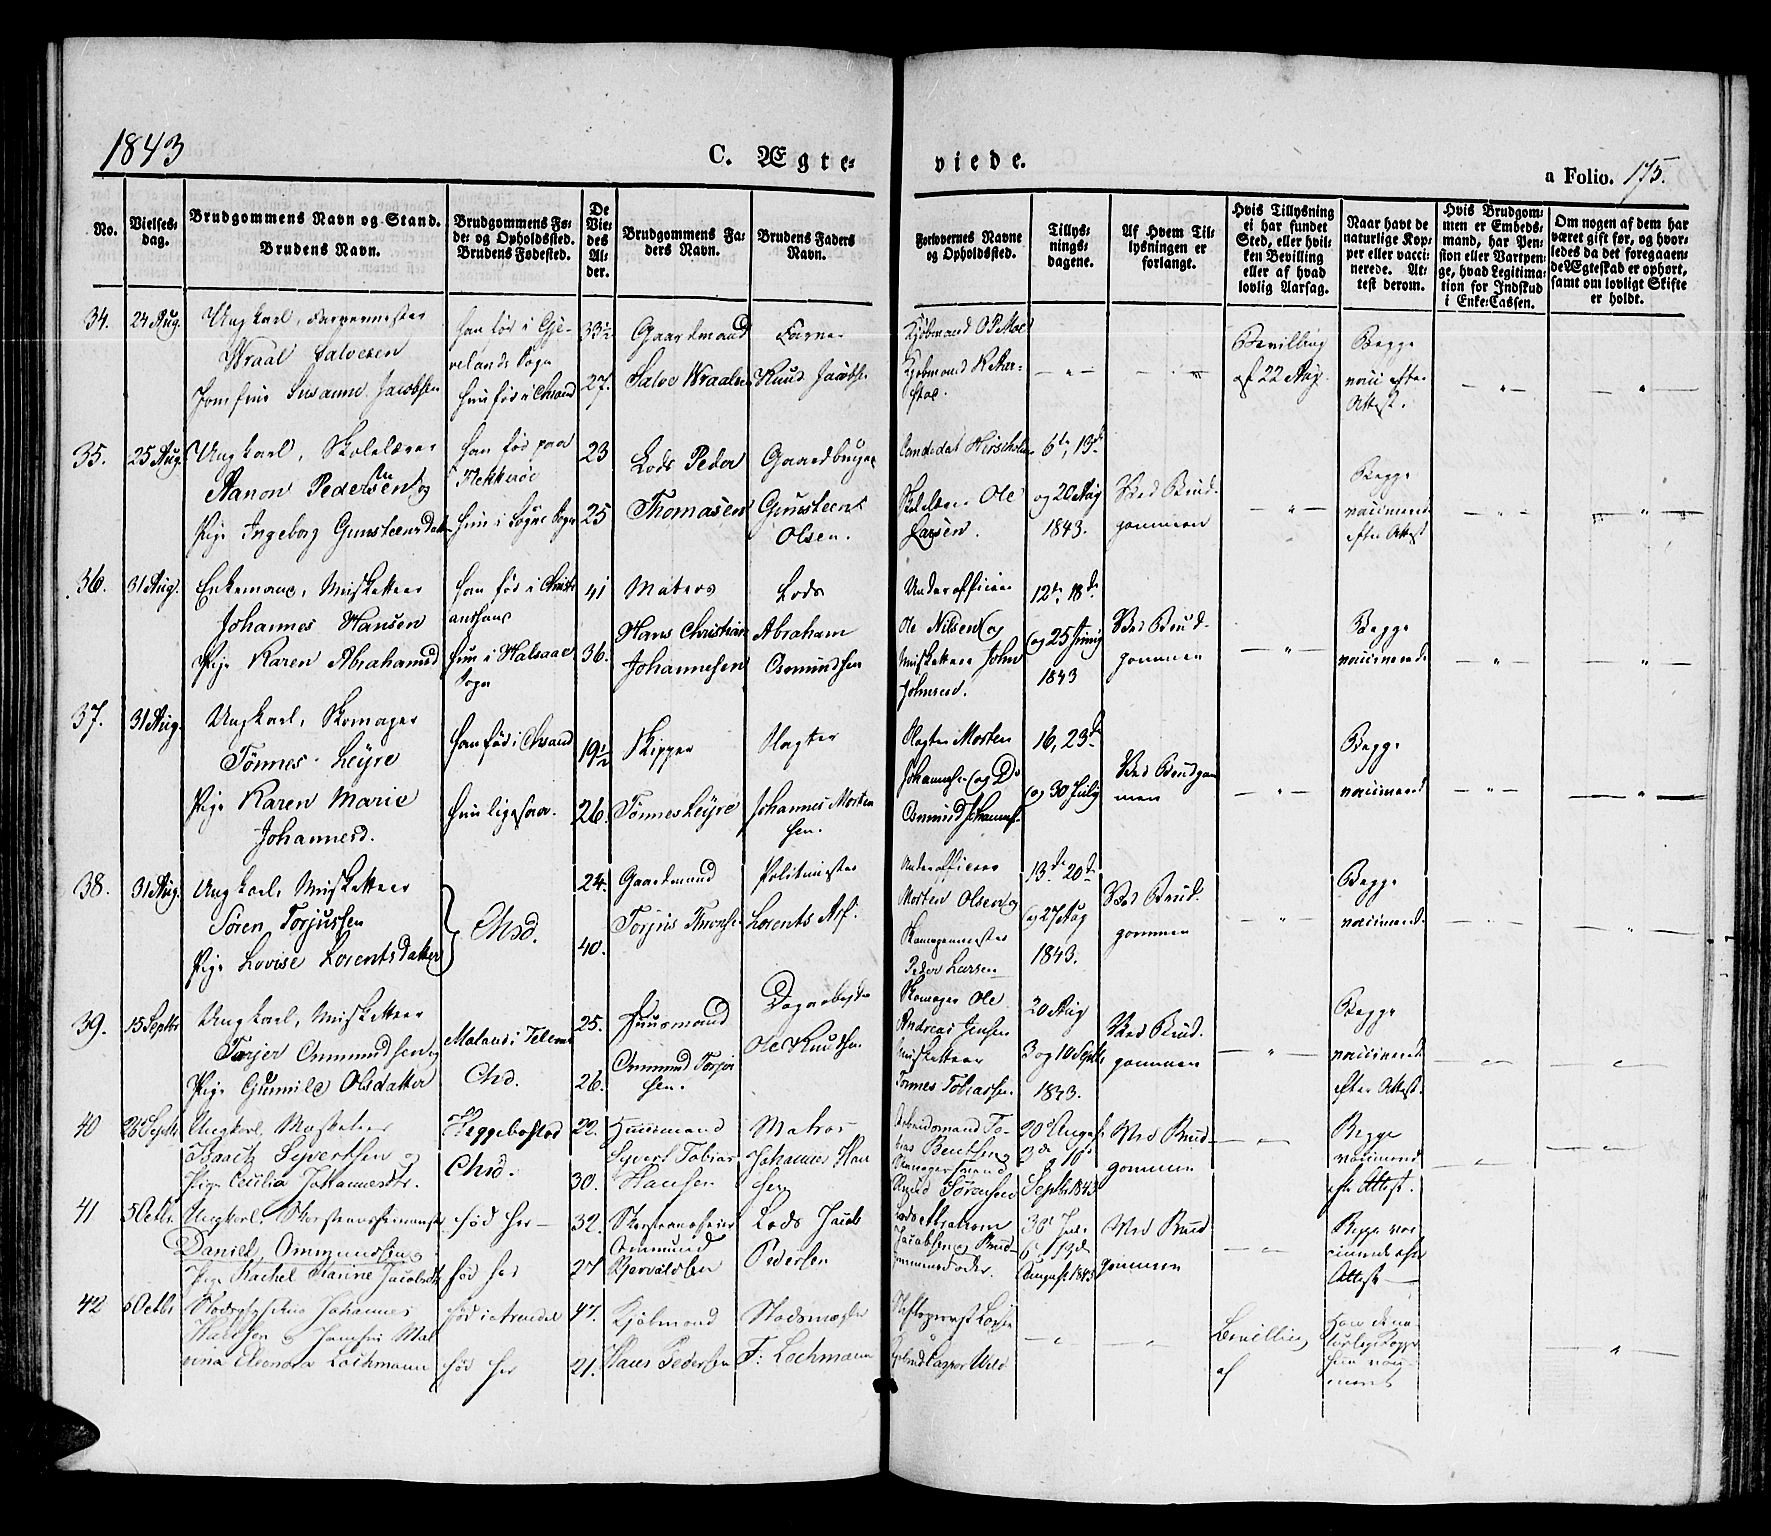 1843
C. Ægte- viede.
a Folio. 175.
No.
Vielses-
dag.
Brudgommens Navn og Stand.
Brudens Navn.
Brudgommens Fø-
de- og Opholdssted.
Brudens Fødested.
De
Vie-
des
Al-
der.
Brudgommens Fa-
ders Navn.
Brudens Faders
Navn.
Forlovernes Navne
og Opholdssted.
Tillys-
nings-
dagene.
Af Hvem Til-
lysningen er
forlangt.
Hvis Tillysning
ei har fundet
Sted, eller hvil-
ken Bevilling
eller af hvad
lovlig Aarsag.
Naar havt de
naturlige Kop-
per eller vacci-
nerede. At-
test derom.
Hvis Brudgom-
men er Embeds-
mand, har Pen-
sion eller Vartpen-
ge, hvad Legitima-
tion for Indskud
i Enke-Cassen.
Om nogen af dem har
været gift før, og hvor-
ledes da det foregaaen-
de Ægteskab er ophørt,
samt om lovligt Skifte
er holdt.
34. 24 Aug. Ungkarl, Farvermester
Wraal Salvesen
Jomfru Susanne Jacobsen
han fød i
Sogn
hun fød i Chsand
33½
27.
Gaardmand
Salve Wraalsen
Farver
Knud Jacobs.
Kjøbmand O P Moe
Kjøbmand
Bevilling
af 22 Aug.
Begge
vacc efter
Attest.
35. 25 Aug. Ungkarl, Skolelærer
Aanon Pedersen og
Pige Ingeborg Gunsteensdatter
han fød paa
Flekkerøe
hun i Søgne Sogn
23
25
Lods Peder
Thomasen
Gaardbruger
Gunsteen
Olsen.
Candidat
Skolelærer Ole
Larsen.
6te, 13de
og 20 Aug
1843.
Ved Brud-
gommen
Begge
vaccinerede
efter Attest
36. 31 Aug. Enkemand, Musketteer
Johannes Hansen
Pige Karen Abrahamsd
han fød i Christi-
ansand
hun i Halsaae
Sogn
41
36.
Matros
Hans Christian
Johannesen
Lods
Abraham
Osmundsen
Underofficier
Ole Nilsen og
Musketteer John
Johnsen.
12te, 18de
og 25 Juny
1843
Ved Brud-
gommen
Begge
vaccinerede
37. 31 Aug. Ungkarl, Skomager
Tønnes Leyre
Pige Karen Marie
Johannesd.
han fød i Chsand
hun ligesaa.
19½
26.
Skipper
Tønnes Leyre
Slagter
Johannes Morten
sen.
Slagter Morten
Johannesen og Do
Osmund Johannes.
16, 23de
og 30 July
Ved Brudgom
men
Begge
vaccinerede
38. 31 Aug. Ungkarl, Musketteer
Søren Torjussen
Pige Lovise Lorentsdatter
Chsd.
24.
40.
Gaardmand
Torjus
Politimester
Lorents
Underofficier
Morten Olsen og
Skomagermester
Peder Larsen
13de 20de
og 27 Aug
1843.
Ved Brud-
gommen
Begge
vaccinerede
39. 15 Septbr Ungkarl, Musketteer
Torjer Ommundsen og
Pige Gunnild Olsdatter
Moland i Telem
Chsd.
25.
26.
Huusmand
Ommund Torjer
sen.
Dagarbeyder
Ole Knudsen
Skomager Ole
Andreas Jensen
Musketteer
Tønnes Tobiassen.
20 Aug
3 og 10 Septbr
1843.
Ved Brud-
gommen
Begge
vaccinerede
efter Attest.
40 Septb Ungkarl, Musketeer
Sejvertsen og
Pige Cecilia Johannesdtr.
Heggebostad
Chsd.
22.
30.
Huusmand
Syvert Tobias
Hansen
Matros
Johannes Han
sen
Arbeidsmand To-
bias Bentsen og
Skomagersvend
Sørensen
20de August
3de 10de
Septbr 1843
Ved Brud-
gommen
Begge
vaccinerede
eft. Attest.
41 5 Octbr. Ungkarl,
Daniel Ommundsen og
Pige Rachel Karine Jacobsdtr
fød her
fød her
32.
27
Ommund
Lods Jacob
Pedersen
Lods Abraham
Jacobsen og Brud-
gommens Fader.
30te Juli
6te 13de
August 1843
Ved Brud-
gommen
Begge vac-
cinerede efter
Attest
42 5 Octbr Johannes
og Jomfru Mal-
vina Eleonora Lochmann
fød i Arendal
fød her
47.
21.
Kjøbmand
Hans Pedersen
Stadsmægler
F: Lochmann
Caspar Wild
Bevilling
af
Ham de na-
turlige Kopper
hun vac-
cineret